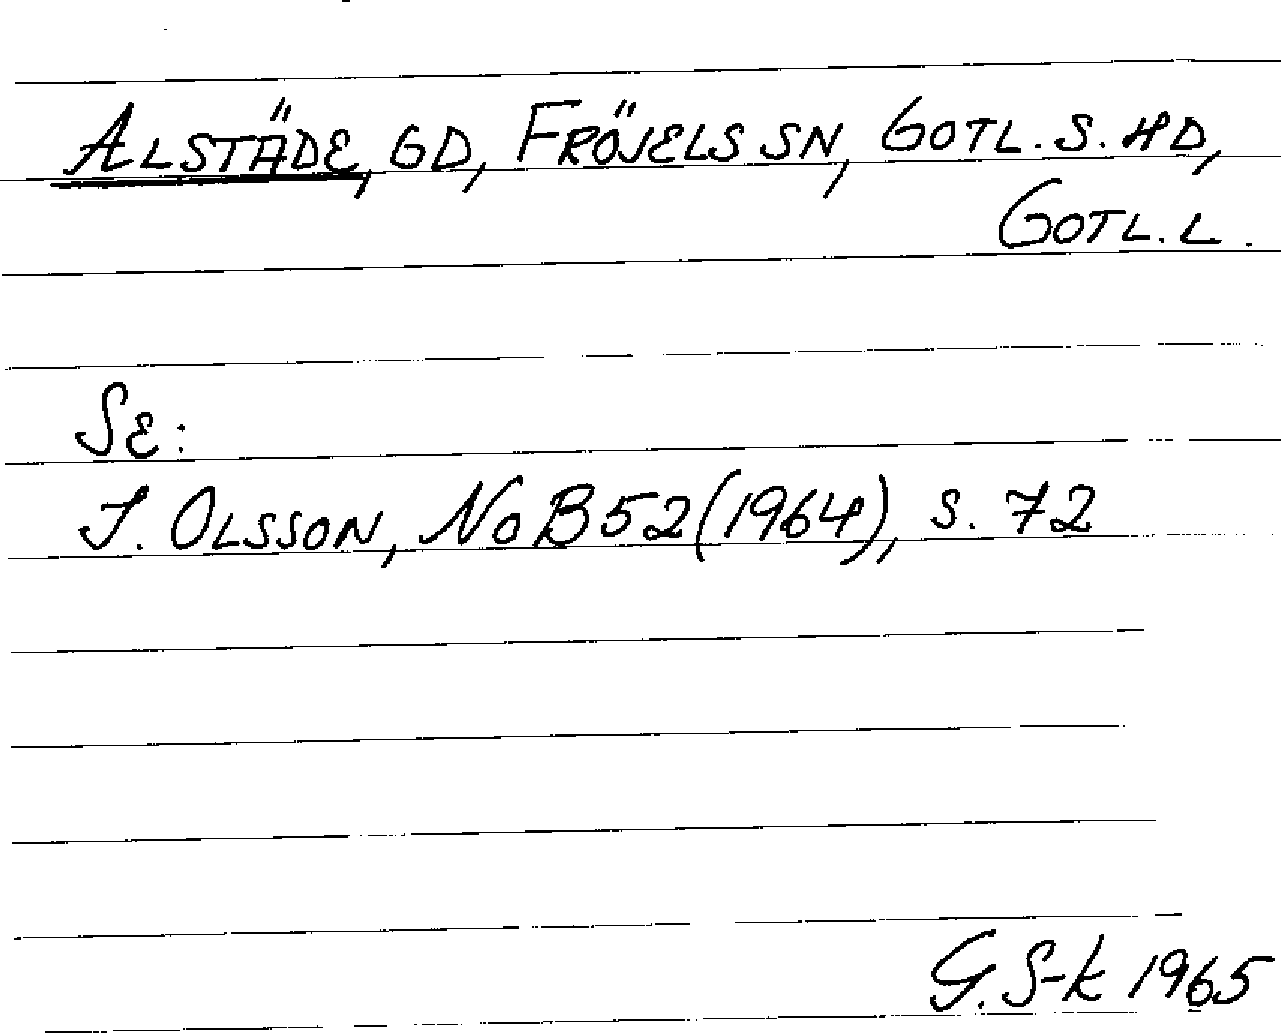 ALSTÄDE, GD, FRÖJELS SN, GOTL. S. HD,
GOTL. L.
SE:
I. OLSSON, NoB 52 (1964), s. 72
G. S-k 1965